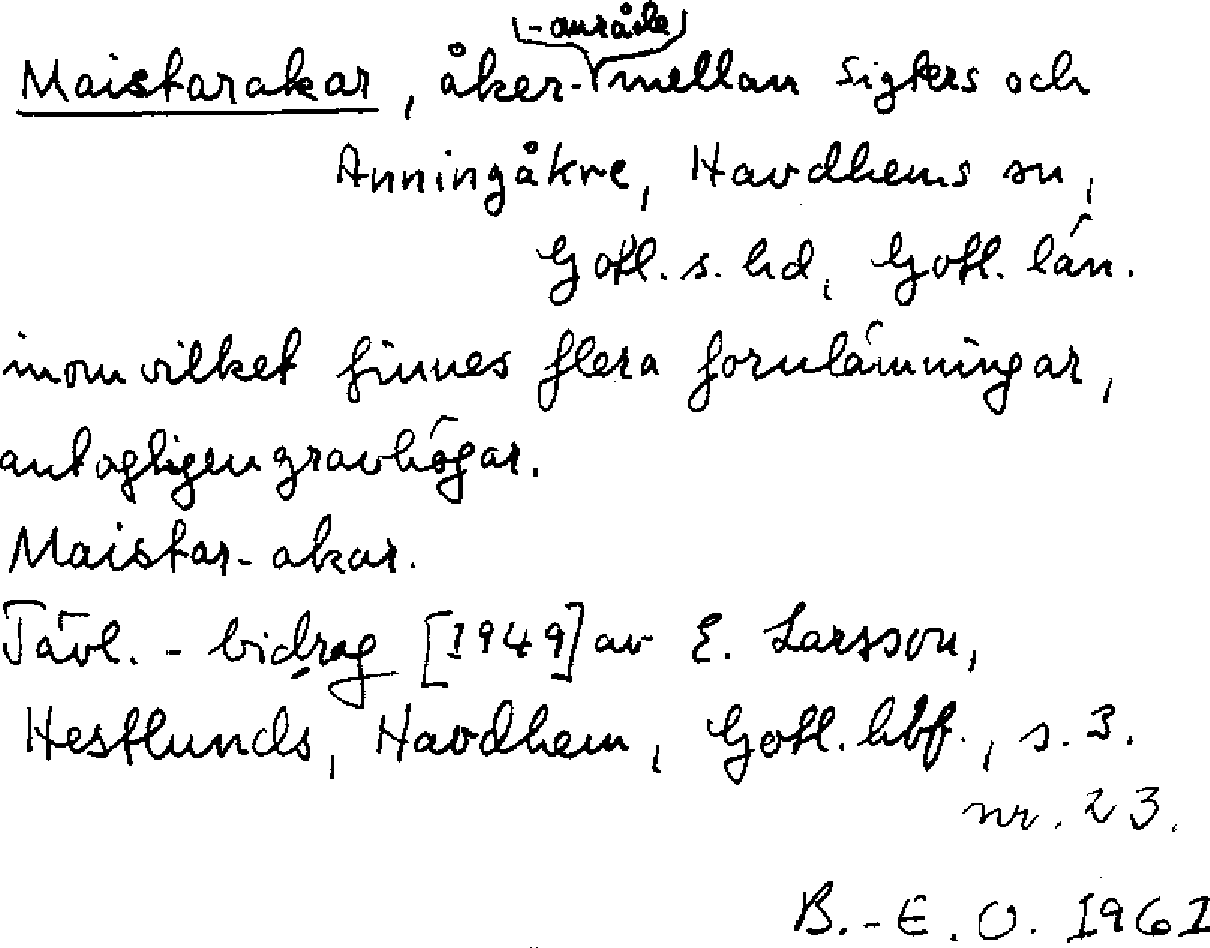 -område
Maistarakar, åker- mellan Sigters och
Anningåkre, Havdhems sn,
Gotl. s. hd, Gotl. län.
inom vilket finnes flera fornlämningar,
antagligen gravhögar.
Maistar-akar.
Tävl.-bidrag [1949] av E. Larsson,
Hestlunds, Havdhem, Gotl. hbf., s. 3.
nr. 23.
B.-E. O. 1961